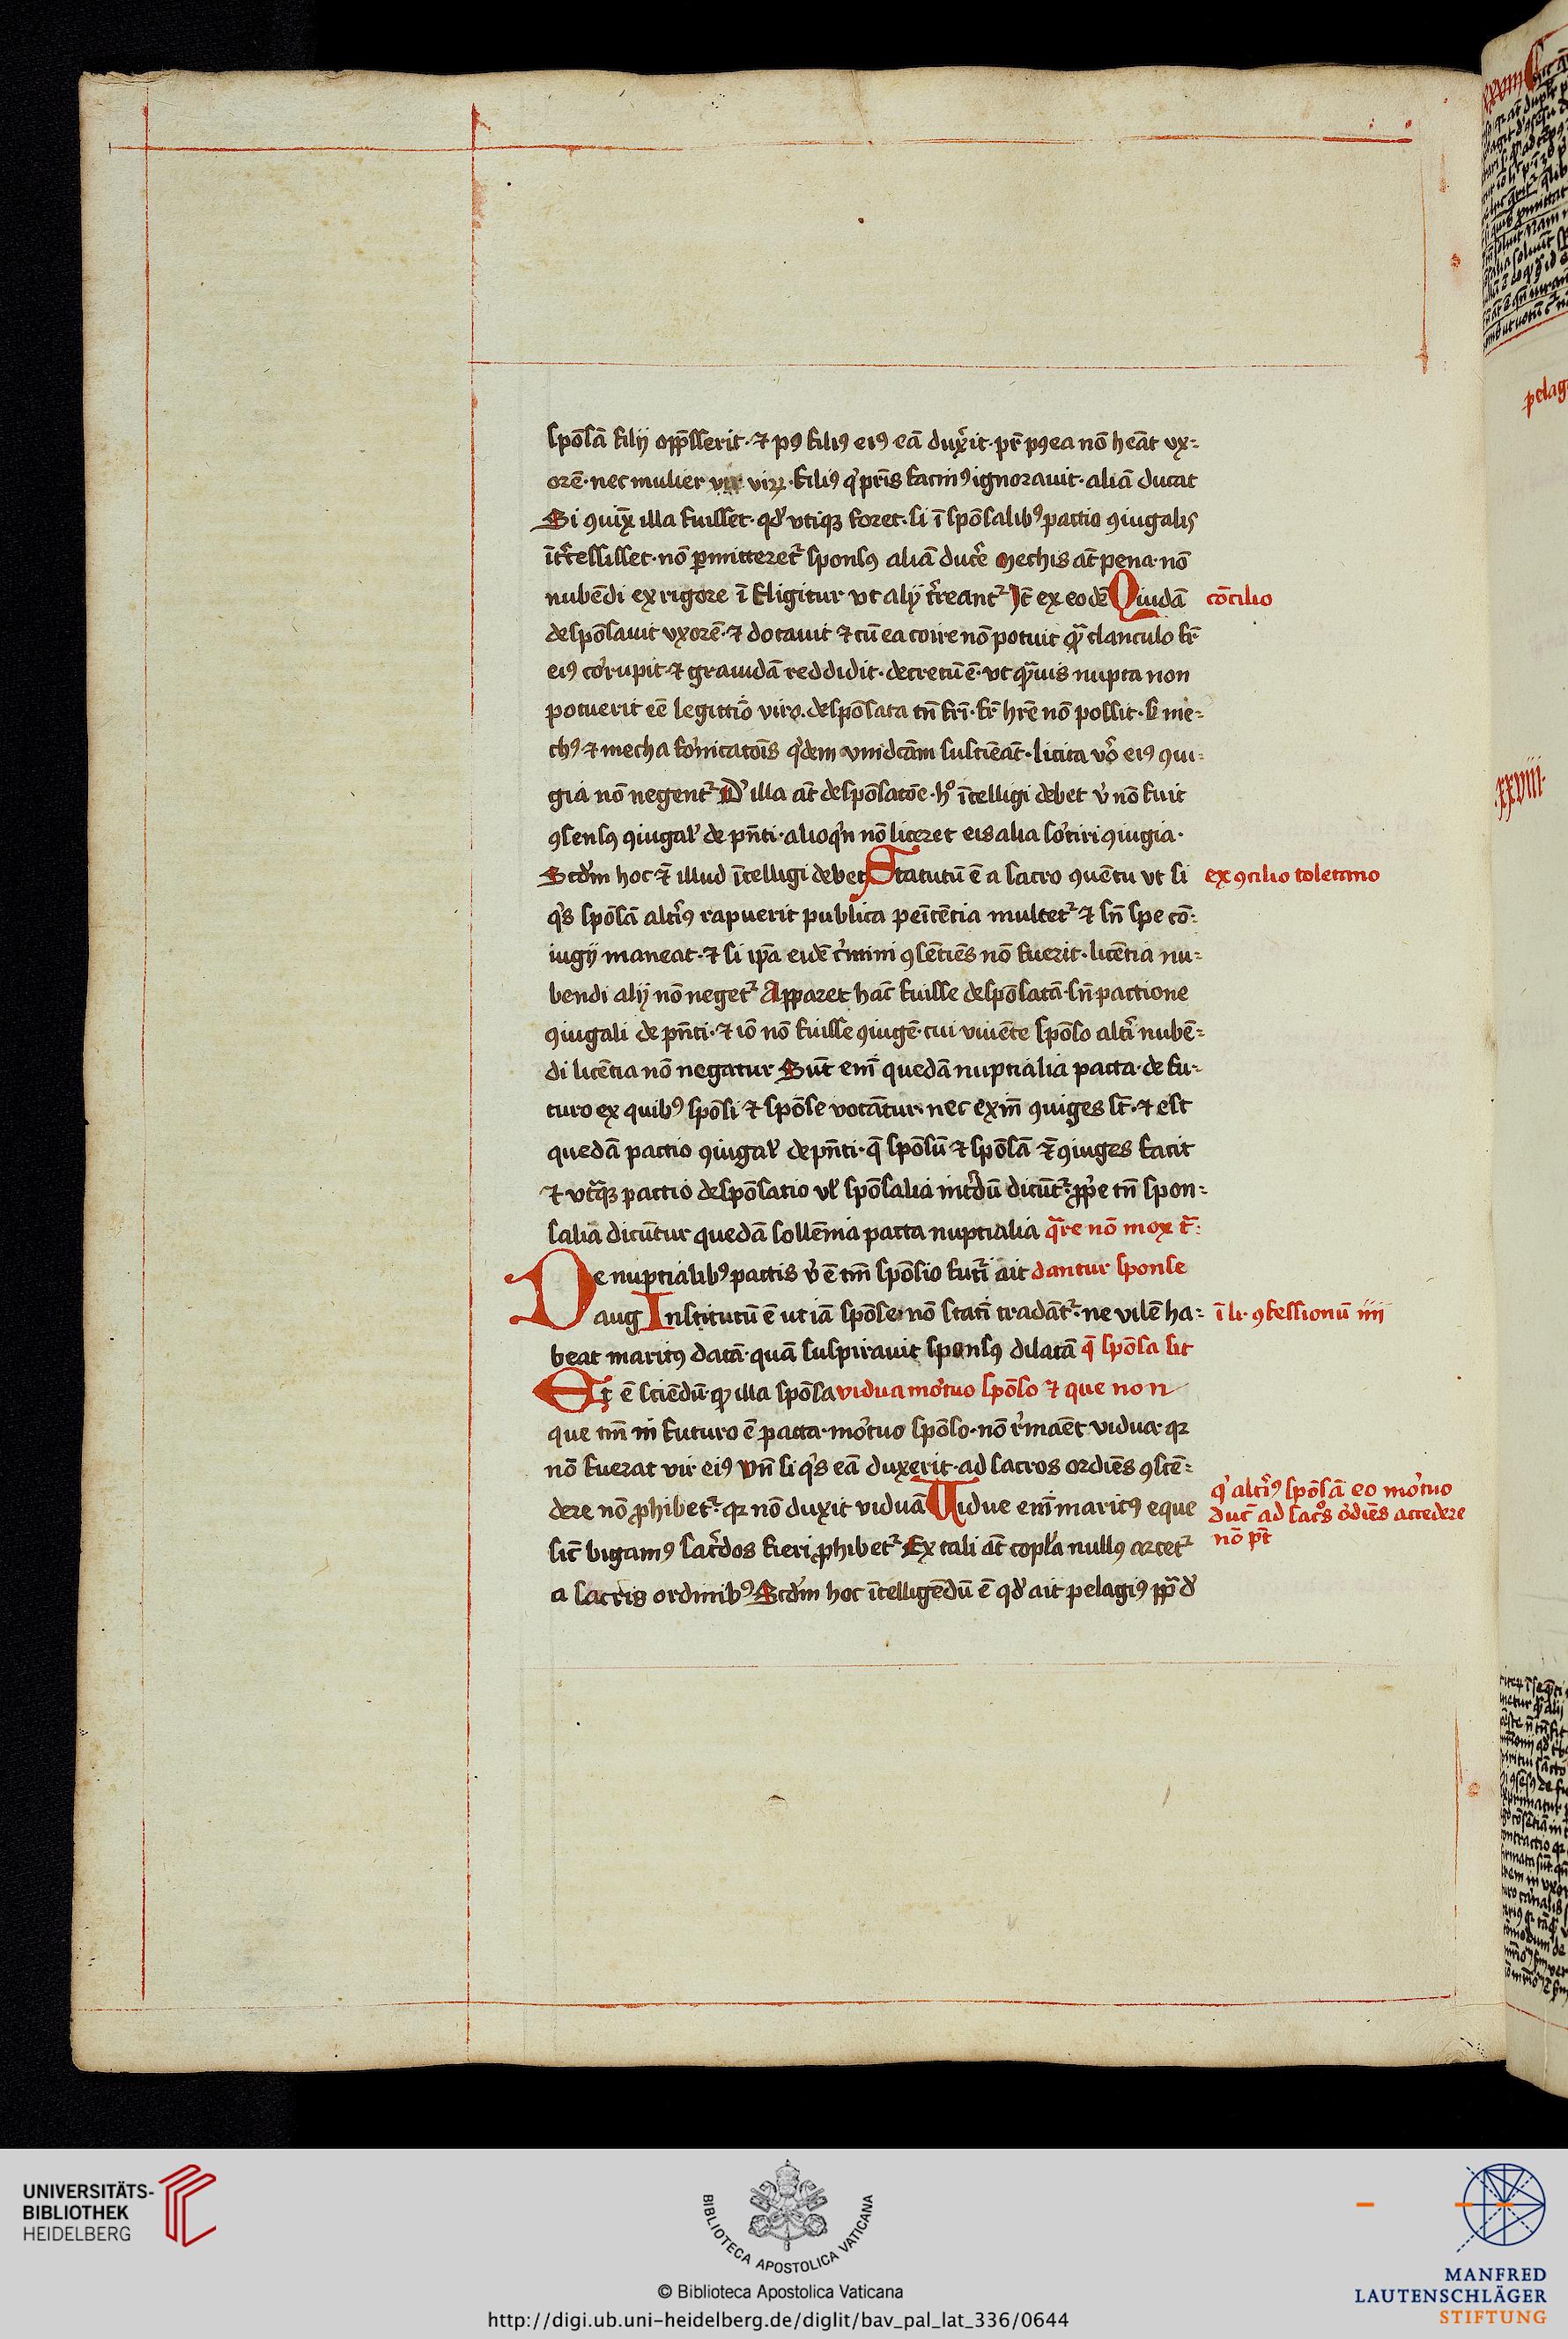 spōsā filij opp̄sserit · ⁊ pꝰ filiꝰ eiꝰ eā dux͛it · pr̄ pꝰea nō heāt vx-
orē · nec mulier vir viꝝ · filiꝰ qͥ pr̄is facinꝰ ignorauit · aliā ducat
Si ꝯiux̄ illa fuisset · qd̓ vtiqꝫ foret · si ī spōsalibꝰ pactio ꝯiugalis
īt͛cessisset · nō ꝑmitteret᷑ sponsꝰ aliā duc͛e Mechis at̄ pena · nō
nubēdi ex rigore īfligitur vt alij t͛reant᷑ Jt̄ ex eodē Quidā
cōcilio
despōsauit vxorē · ⁊ dotauit ⁊ cū ea coire nō potuit qᷓ clanculo fr̄
eiꝰ cor̓upit ⁊ grauidā reddidit · decretū ē · vt qᷓuis nupta non
potuerit eē legittīo viro · despōsata tn̄ fr̄i · fr̄ hr̄e nō possit · sꝫ me-
chꝰ ⁊ mecha for̓nicatōis qͥdem vindcām susciēāt · licita vō eiꝰ ꝯiu-
gia nō negent᷑ D̓ illa at̄ despōsatōe · hͦ ītelligi debet vͥ nō fuit
ꝯsensꝰ ꝯiugal̓ de pn̄ti · alioqͥn nō liceret eis alia sor̓tiri ꝯiugia ·
Scd̓m hoc ⁊̄ illud ītelligi debet Statutū ē a sacro ꝯuētu vt si
ex ꝯcilio toletano
qͥs spōsā alt͛iꝰ rapuerit publica peītēcia multet᷑ ⁊ sn̄ spe cō-
iugij maneat · ⁊ si ip̄a eidē c͛mini ꝯsētiēs nō fuerit · licētia nu-
bendi alij nō neget᷑ Apparet hāc fuisse despōsatā · sn̄ pactione
ꝯiugali de pn̄ti · ⁊ iō nō fuisse ꝯiugē · cui viuēte spōso alt͛i nubē-
di licētia nō negatur Sūt em̄ quedā nuptialia pacta · de fu-
turo ex quibꝰ spōsi ⁊ spōse vocātur · nec exīn ꝯiuges st̄ · ⁊ est
quedā pactio ꝯiugal̓ de pn̄ti · q̄ spōsū ⁊ spōsā ⁊̄ ꝯiuges facit
⁊ vtᷓqꝫ pactio despōsatio vl̓ spōsalia int͛dū dicūt᷑ · ꝓp̄e tn̄ spon-
salia dicūtur quedā sollēnia pacta nuptialia qᷓre nō mox t̄-
De nuptialibꝰ pactis vͥ ē tm̄ spōsio futͥ ait dantur sponse
aug Institutū ē ut iā spōse nō statī tradāt᷑ · ne vilē ha-
ī li · ꝯfessionū iiii
beat maritꝰ datā · quā suspirauit sponsꝰ dilatā q̄ spōsa sit
Et ē sciēdū · ꝙ illa spōsa vidua mor̓tuo spōso ⁊ que non
que tm̄ in futuro ē pacta · mor̓tuo spōso · nō r͛māet vidua · qꝛ
nō fuerat vir eiꝰ Vn̄ si qͥs eā duxerit · ad sacros ordiēs ꝯscē-
dere nō ꝓhibet᷑ · qꝛ nō duxit viduā Uidue em̄ maritꝰ eque
qͥ alt͛iꝰ spōsā eo mor̓tuo
duc̄ ad sac͛os or̓diēs accedere
nō pt̄
sic̄ bigamꝰ sac͛dos fieri ꝓhibet᷑ Ex tali at̄ copl̓a nullꝰ arcet᷑
a sacris ordinibꝰ Scd̓m hoc ītelligēdū ē qd̓ ait pelagiꝰ pp̄ d̓
pelag
xxviii
UNIVERSITÄTS-
BIBLIOTHEK
HEIDELBERG
BIBLIOTECA APOSTOLICA VATICANA
© Biblioteca Apostolica Vaticana
http://digi.ub.uni-heidelberg.de/diglit/bav_pal_lat_336/0644
MANFRED
LAUTENSCHLÄGER
STIFTUNG